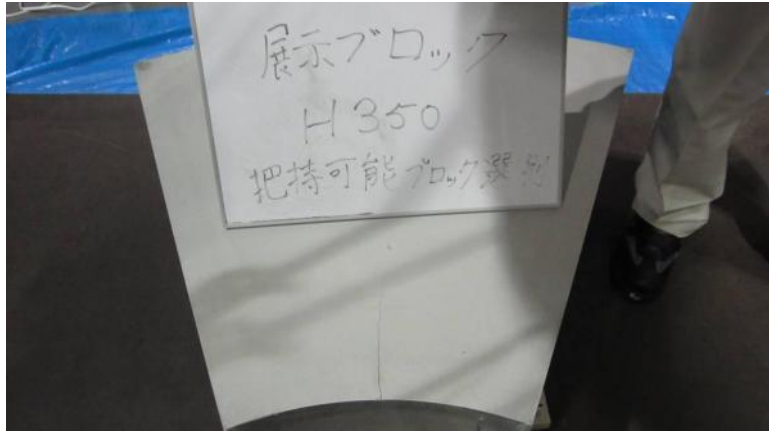 展示ブロック
H350
把持可能ブロック選別